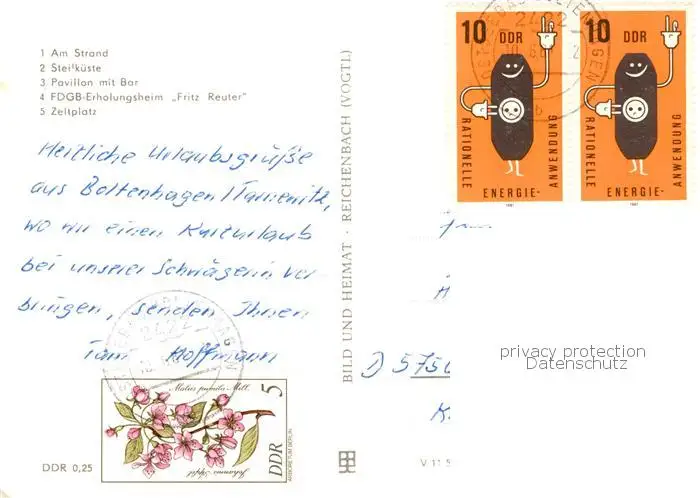 1 Am Strand
2 Steilküste
3 Pavillon mit Bar
4 FDGB-Erholungsheim „Fritz Reuter"
5 Zeltplatz
Herzliche Urlaubsgrüße
aus Boltenhagen/Tarnewitz,
wo wir einen Kurzurlaub
bei unserer Schwägerin ver
bringen, senden Ihnen
Fam. Hoffmann
DDR 0,25
Malus pumila Mill.
5
DDR
ARBORETUM BERLIN
Johannis-Apfel
BILD UND HEIMAT · REICHENBACH (VOGTL)
10 DDR
RATIONELLE
ENERGIE-
ANWENDUNG
1981
10 DDR
RATIONELLE
ENERGIE-
ANWENDUNG
1981
2422
2422
5750
privacy protection
Datenschutz
V 11 5